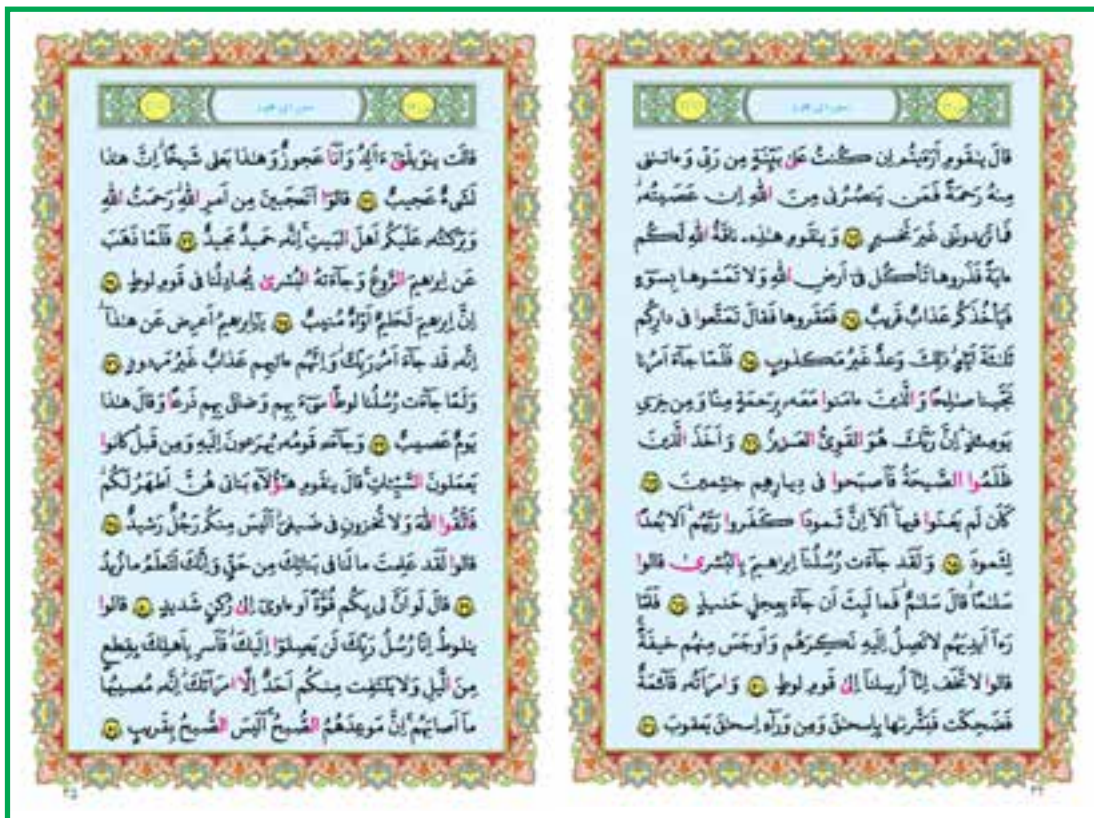 قالَ يٰقَومِ أَرَءَيتُم إِن كُنتُ عَلىٰ بَيِّنَةٍ مِن رَبّى وَءاتىٰنى
مِنهُ رَحمَةً فَمَن يَنصُرُنى مِنَ اللَّهِ إِن عَصَيتُهُ
فَما تَزيدونَنى غَيرَ تَخسيرٍ ﴿٦٣﴾ وَيٰقَومِ هٰذِهِ ناقَةُ اللَّهِ لَكُم
ءايَةً فَذَروها تَأكُل فى أَرضِ اللَّهِ وَلا تَمَسّوها بِسوءٍ
فَيَأخُذَكُم عَذابٌ قَريبٌ ﴿٦٤﴾ فَعَقَروها فَقالَ تَمَتَّعوا فى دارِكُم
ثَلٰثَةَ أَيّامٍ ذٰلِكَ وَعدٌ غَيرُ مَكذوبٍ ﴿٦٥﴾ فَلَمّا جاءَ أَمرُنا
نَجَّينا صٰلِحًا وَالَّذينَ ءامَنوا مَعَهُ بِرَحمَةٍ مِنّا وَمِن خِزىِ
يَومِئِذٍ إِنَّ رَبَّكَ هُوَ القَوِىُّ العَزيزُ ﴿٦٦﴾ وَأَخَذَ الَّذينَ
ظَلَمُوا الصَّيحَةُ فَأَصبَحوا فى دِيارِهِم جٰثِمينَ ﴿٦٧﴾
كَأَن لَم يَغنَوا فيها أَلا إِنَّ ثَمودَا۟ كَفَروا رَبَّهُم أَلا بُعدًا
لِثَمودَ ﴿٦٨﴾ وَلَقَد جاءَت رُسُلُنا إِبرٰهيمَ بِالبُشرىٰ قالوا
سَلٰمًا قالَ سَلٰمٌ فَما لَبِثَ أَن جاءَ بِعِجلٍ حَنيذٍ ﴿٦٩﴾ فَلَمّا
رَءا أَيدِيَهُم لا تَصِلُ إِلَيهِ نَكِرَهُم وَأَوجَسَ مِنهُم خيفَةً
قالوا لا تَخَف إِنّا أُرسِلنا إِلىٰ قَومِ لوطٍ ﴿٧٠﴾ وَامرَأَتُهُ قائِمَةٌ
فَضَحِكَت فَبَشَّرنٰها بِإِسحٰقَ وَمِن وَراءِ إِسحٰقَ يَعقوبَ ﴿٧١﴾
قالَت يٰوَيلَتىٰ ءَأَلِدُ وَأَنا عَجوزٌ وَهٰذا بَعلى شَيخًا إِنَّ هٰذا
لَشَىءٌ عَجيبٌ ﴿٧٢﴾ قالوا أَتَعجَبينَ مِن أَمرِ اللَّهِ رَحمَتُ اللَّهِ
وَبَرَكٰتُهُ عَلَيكُم أَهلَ البَيتِ إِنَّهُ حَميدٌ مَجيدٌ ﴿٧٣﴾ فَلَمّا ذَهَبَ
عَن إِبرٰهيمَ الرَّوعُ وَجاءَتهُ البُشرىٰ يُجٰدِلُنا فى قَومِ لوطٍ ﴿٧٤﴾
إِنَّ إِبرٰهيمَ لَحَليمٌ أَوّٰهٌ مُنيبٌ ﴿٧٥﴾ يٰإِبرٰهيمُ أَعرِض عَن هٰذا
إِنَّهُ قَد جاءَ أَمرُ رَبِّكَ وَإِنَّهُم ءاتيهِم عَذابٌ غَيرُ مَردودٍ ﴿٧٦﴾
وَلَمّا جاءَت رُسُلُنا لوطًا سىءَ بِهِم وَضاقَ بِهِم ذَرعًا وَقالَ هٰذا
يَومٌ عَصيبٌ ﴿٧٧﴾ وَجاءَهُ قَومُهُ يُهرَعونَ إِلَيهِ وَمِن قَبلُ كانوا
يَعمَلونَ السَّيِّـٔاتِ قالَ يٰقَومِ هٰؤُلاءِ بَناتى هُنَّ أَطهَرُ لَكُم
فَاتَّقُوا اللَّهَ وَلا تُخزونِ فى ضَيفى أَلَيسَ مِنكُم رَجُلٌ رَشيدٌ ﴿٧٨﴾
قالوا لَقَد عَلِمتَ ما لَنا فى بَناتِكَ مِن حَقٍّ وَإِنَّكَ لَتَعلَمُ ما نُريدُ
﴿٧٩﴾ قالَ لَو أَنَّ لى بِكُم قُوَّةً أَو ءاوى إِلىٰ رُكنٍ شَديدٍ ﴿٨٠﴾ قالوا
يٰلوطُ إِنّا رُسُلُ رَبِّكَ لَن يَصِلوا إِلَيكَ فَأَسرِ بِأَهلِكَ بِقِطعٍ
مِنَ الَّيلِ وَلا يَلتَفِت مِنكُم أَحَدٌ إِلَّا امرَأَتَكَ إِنَّهُ مُصيبُها
ما أَصابَهُم إِنَّ مَوعِدَهُمُ الصُّبحُ أَلَيسَ الصُّبحُ بِقَريبٍ ﴿٨١﴾